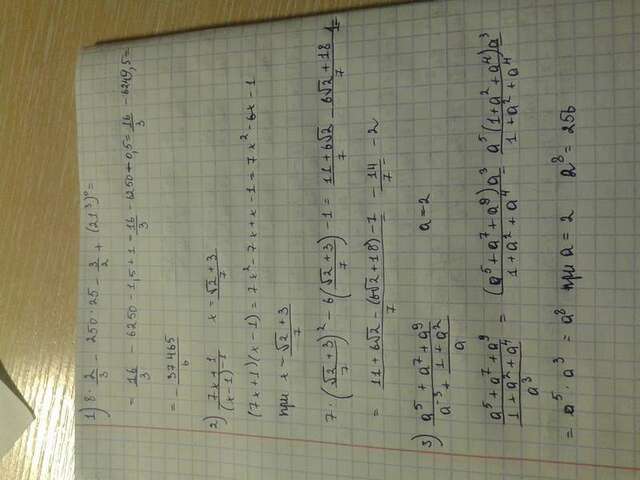 1) 8 · 2/3 - 250 · 25 - 3/2 + (21³)⁰ =
= 16/3 - 6250 - 1,5 + 1 = 16/3 - 6250 + 0,5 = 16/3 - 6249,5 =
= - 37465/6
2) (7x+1)/(x-1)⁻¹ x = (√2+3)/7
(7x+1)(x-1) = 7x² - 7x + x - 1 = 7x² - 6x - 1
при x = (√2+3)/7
7 · ((√2+3)/7)² - 6((√2+3)/7) - 1 = (11+6√2)/7 - (6√2+18)/7 - 1 =
= (11+6√2 - (6√2+18) - 7)/7 = - 14/7 = -2
3) (a⁵+a⁷+a⁹)/(a⁻³ + (1+a²)/a) a = 2
(a⁵+a⁷+a⁹)/((1+a²+a⁴)/a³) = ((a⁵+a⁷+a⁹)a³)/(1+a²+a⁴) = (a⁵(1+a²+a⁴)a³)/(1+a²+a⁴) =
= a⁵ · a³ = a⁸ при a = 2 a⁸ = 256